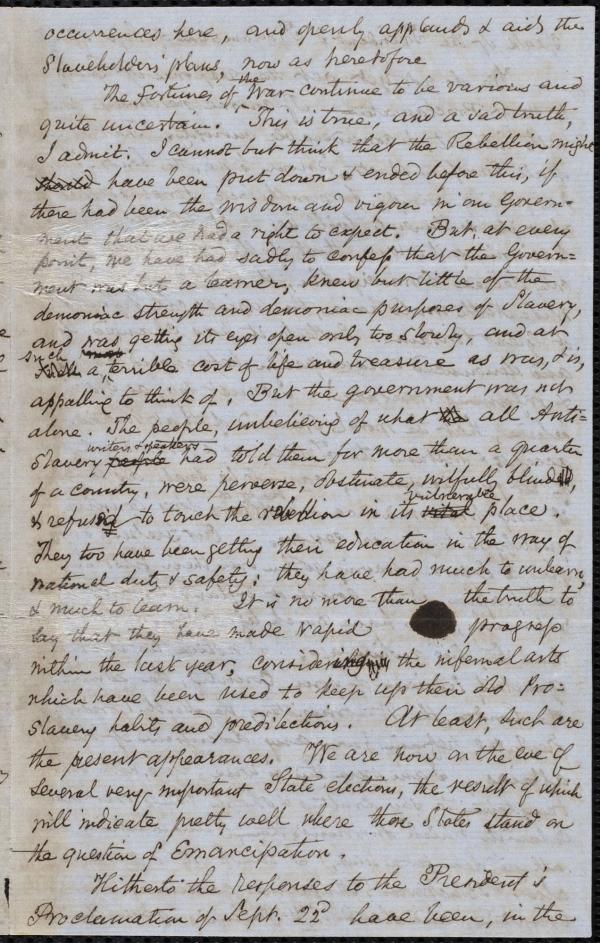 occurrences here, and openly applauds & aids the
Slaveholders' plans, now as heretofore
The Fortunes of the War continue to be various and
quite uncertain. This is true, and a sad truth,
I admit. I cannot but think that the Rebellion might
should have been put down & ended before this, if
there had been the wisdom and vigour in our Govern=
ment that we had a right to expect. But, at every
point, we have had sadly to confess that the Govern=
ment was but a learner, knew but little of the
demoniac strength and demoniac purposes of Slavery,
and was getting its eyes open only too slowly, and at
such a terrible cost of life and treasure as was, & is,
appalling to think of. But the government was not
alone. The people, unbelieving of what the all Anti=
Slavery people writers & speakers had told them for more than a quarter
of a country, were perverse, obstinate, wilfully blind,
& refused to touch the rebellion in its vital vulnerable place.
They too have been getting their education in the way of
national duty & safety; they have had much to unlearn,
& much to learn. It is no more than the truth to
say that they have made rapid progress
within the last year, considering the infernal arts
which have been used to keep up their old Pro=
Slavery habits and predilections. At least, such are
the present appearances. We are now on the eve of
several very important State elections, the result of which
will indicate pretty well where those States stand on
the question of Emancipation.
Hitherto the responses to the President's
Proclamation of Sept. 22d have been, in the